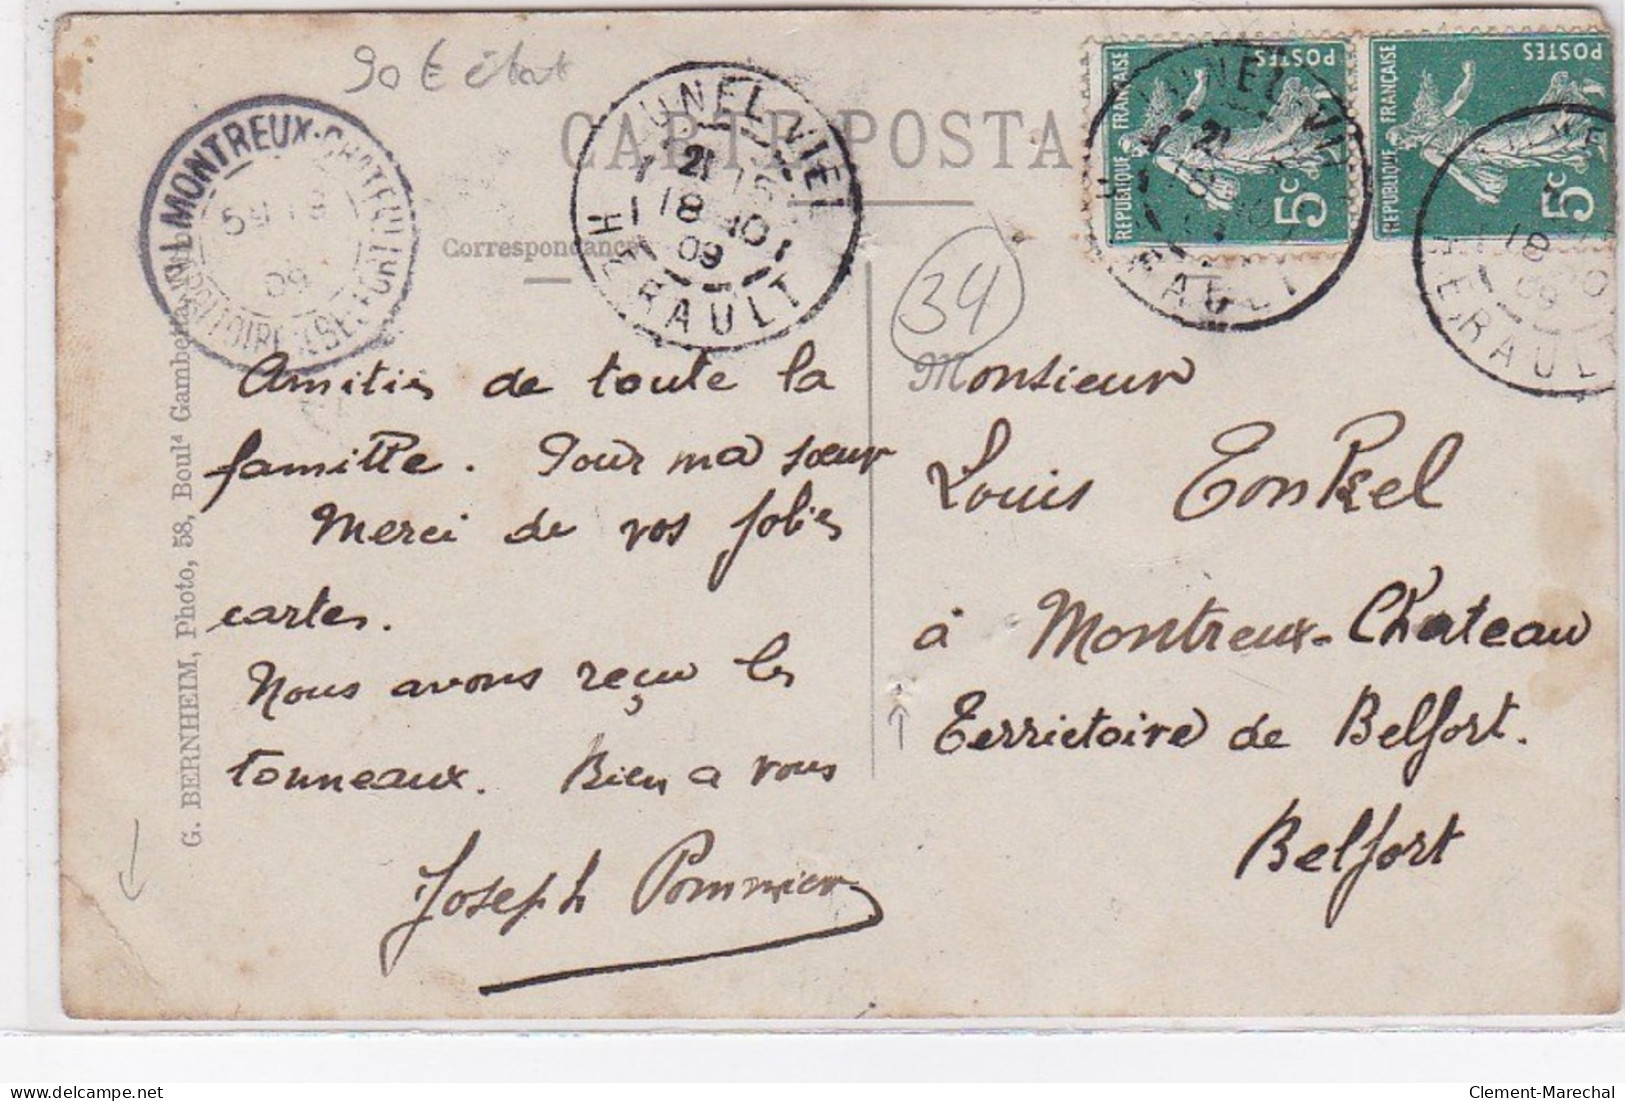 90 € état
CARTE POSTA
Correspondance
MONTREUX-CHATEAU
09
LUNEL-VIEL
21
18 10
09
HÉRAULT
34
RÉPUBLIQUE FRANÇAISE
POSTES
5c
RÉPUBLIQUE FRANÇAISE
POSTES
5c
18
09
HÉRAULT
G. BERNHEIM, Photo, 58, Bould Gambetta,
Amitiés de toute la
famille. Pour ma sœur
Merci de vos jolies
cartes.
Nous avons reçu les
tonneaux. Bien a vous
Joseph Pommier
Monsieur
Louis Tonkel
à Montreux-Château
Terrietoire de Belfort.
Belfort
Clement-Marechal